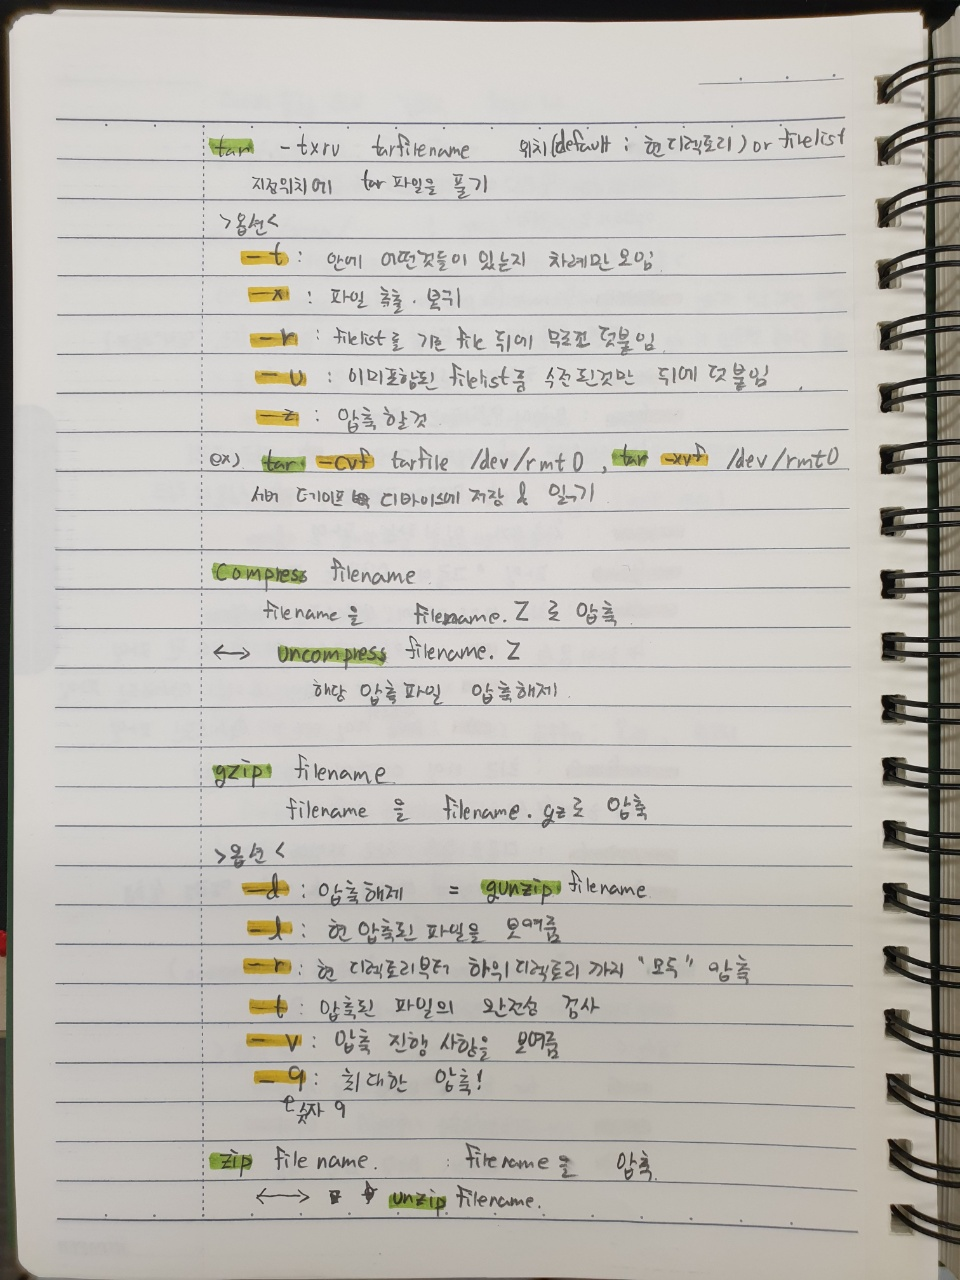 tar -txru tarfilename 위치(default : 현 디렉토리) or filelist
지정위치에 tar 파일을 풀기
>옵션<
-t : 안에 어떤것들이 있는지 차례만 보임
-x : 파일 추출·복구
-r : filelist를 기존 file 뒤에 무조건 덧붙임
-u : 이미포함된 filelist를 수정된것만 뒤에 덧붙임.
-z : 압축할것
ex) tar -cvf tarfile /dev/rmt0, tar -xvf /dev/rmt0
서버 테이프 디바이스에 저장 & 읽기
Compress filename
filename을 filename.Z 로 압축
↔ uncompress filename.Z
해당 압축파일 압축해제.
gzip filename
filename 을 filename.gz로 압축
>옵션<
-d : 압축해제 = gunzip filename
-l : 현 압축된 파일을 보여줌
-r : 현 디렉토리부터 하위디렉토리 까지 "모두" 압축
-t : 압축된 파일의 완전성 검사
-v : 압축 진행 사항을 보여줌
-9 : 최대한 압축!
숫자 9
zip filename. : filename을 압축.
↔ unzip filename.